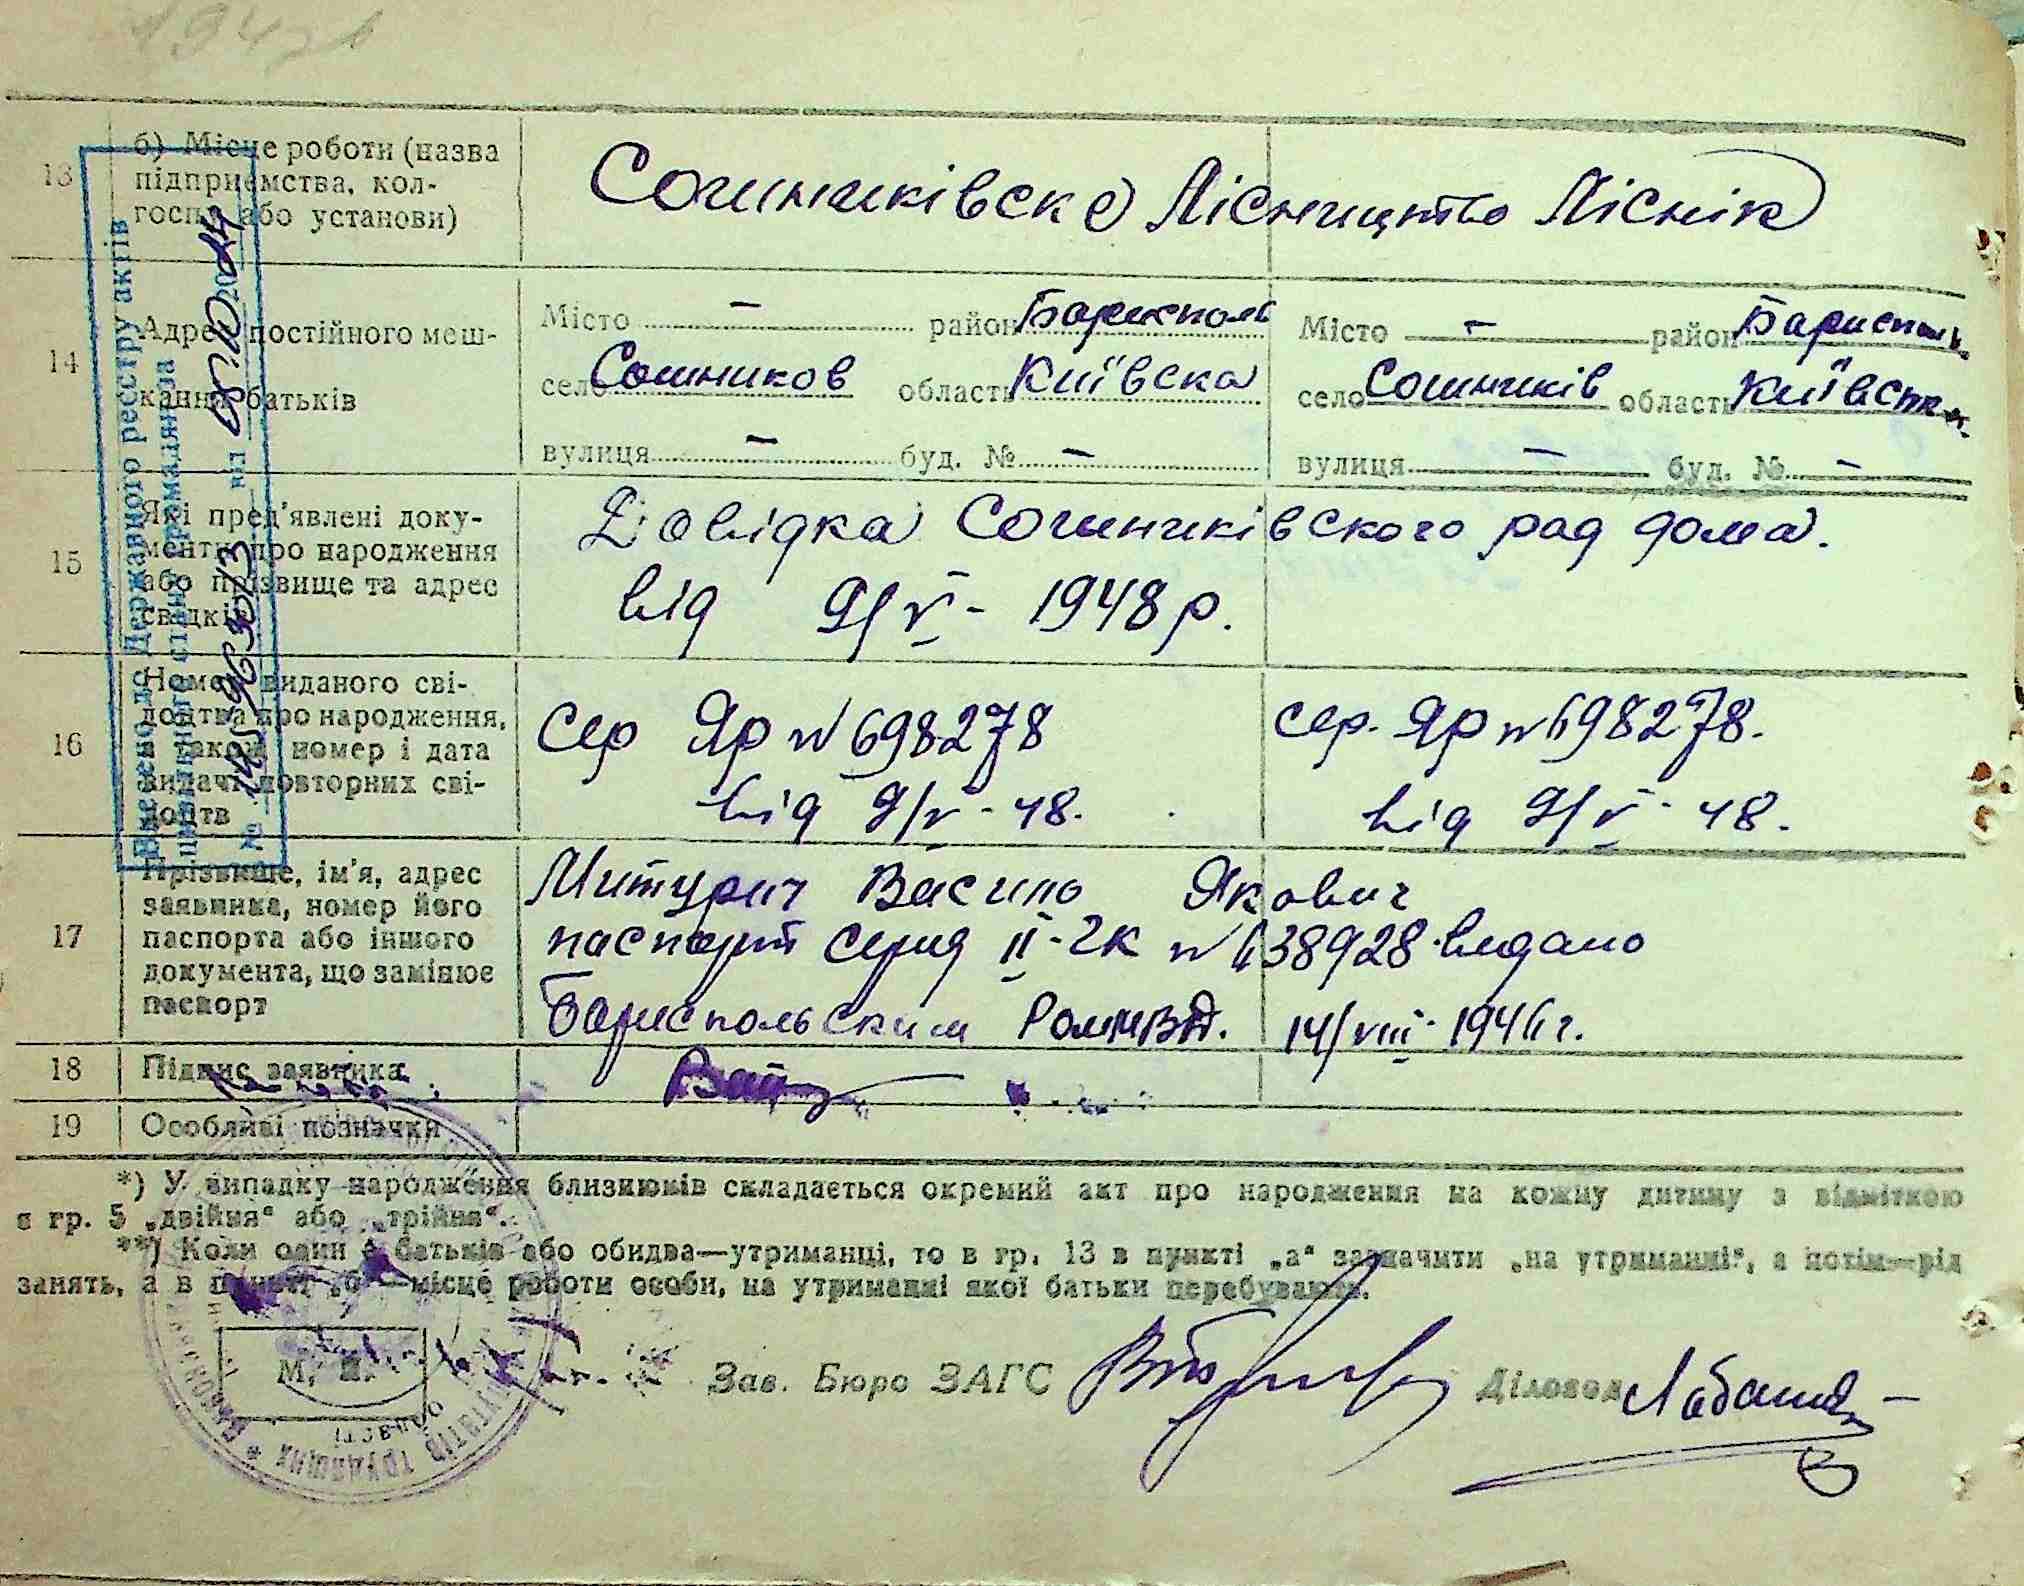 13
б) Місце роботи (назва
підприємства, кол-
госпу або установи)
Сошниківске ЛісництвоЛіснік
14
Адрес постійного меш-
кання батьків
Місто – район Барисполь
село Сошников область Київска
вулиця – буд. № –
Місто – район Бариспол
село Сошників область Київск
вулиця – буд. № –
15
Які пред'явлені доку-
менти про народження
або прізвище та адрес
свідків
Довідка Сошниківского рад дома.
від 9/V - 1948 р.
16
Номер виданого сві-
доцтва про народження,
а також номер і дата
видачі повторних сві-
доцтв
Сер Яр № 698278
від 9/V - 48.
сер. Яр № 698278.
від 9/V - 48.
17
Прізвище, ім'я, адрес
заявника, номер його
паспорта або іншого
документа, що замінює
паспорт
Митурич Василь Якович
паспорт серия II-ЧК № 638928 видано
Бариспольским РомМВД. 14/VIII - 1946 г.
18
Підпис заявника
19
Особливі позначки
*) У випадку народження близнюків складається окремий акт про народження на кожну дитину з відміткою
в гр. 5 „двійня" або „трійня".
**) Коли один з батьків або обидва—утриманці, то в гр. 13 в пункті „а" зазначити „на утриманні", а потім—рід
занять, а в пункті „б"—місце роботи особи, на утриманні якої батьки перебувають.
М. П.
Зав. Бюро ЗАГС
Діловод
Внесено до Державного реєстру актів
цивільного стану громадян за
№ від